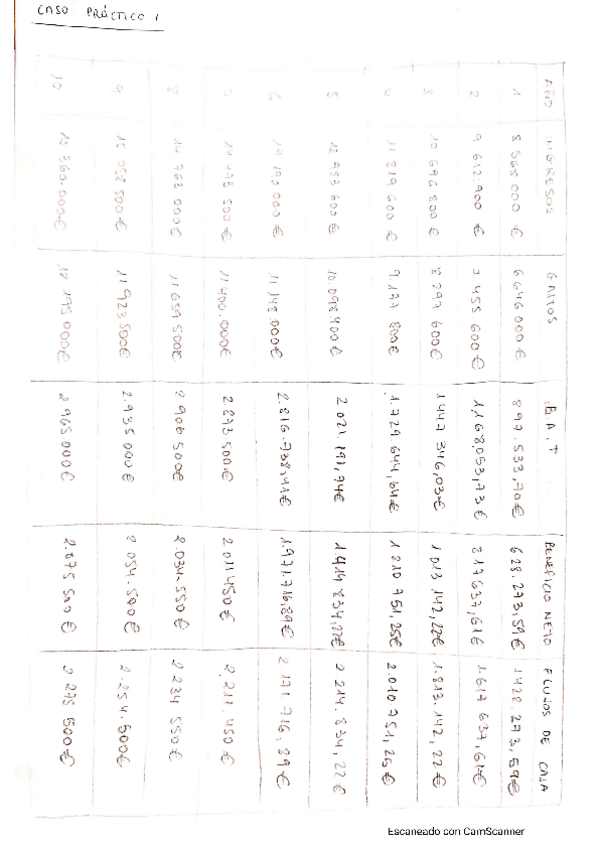 CASO PRÁCTICO 1
AÑO INGRESOS GASTOS B.A.T BENEFICIO NETO FLUJOS DE CAJA
1 8 565 000 € 6 646 000 € 897.533,70€ 628.273,59€ 1428.273,59€
2 9 612.900 € 7 455 600 € 1,168,053,73€ 817 637,61€ 1.617 637,61€
3 10 696 800 € 8 297 600€ 1447 346,03€ 1 013 142,22€ 1.813.142,22€
4 11 819 600 € 9.177 800€ 1.729 644,64€ 1 210 751,25€ 2.010 751,25€
5 12 953 600 € 10.098.400€ 2.021.191,74€ 1.414 834,22€ 2 214.834,22€
6 14 190 000 € 11.148.000€ 2.816.738,41€ 1.971.716,89€ 2 171 716,89€
7 14 473 500€ 11.400.000€ 2 873 500€ 2.011 450€ 2.211.450€
8 14 763 000€ 11 659 500€ 2 906 500€ 2.034.550€ 2 234 550€
9 15 058 500€ 11 923 500€ 2 935 000€ 2 054.500€ 2.254.500€
10 15 360.000€ 12 195 000€ 2 965 000€ 2.075 500€ 2 275 500€
Escaneado con CamScanner